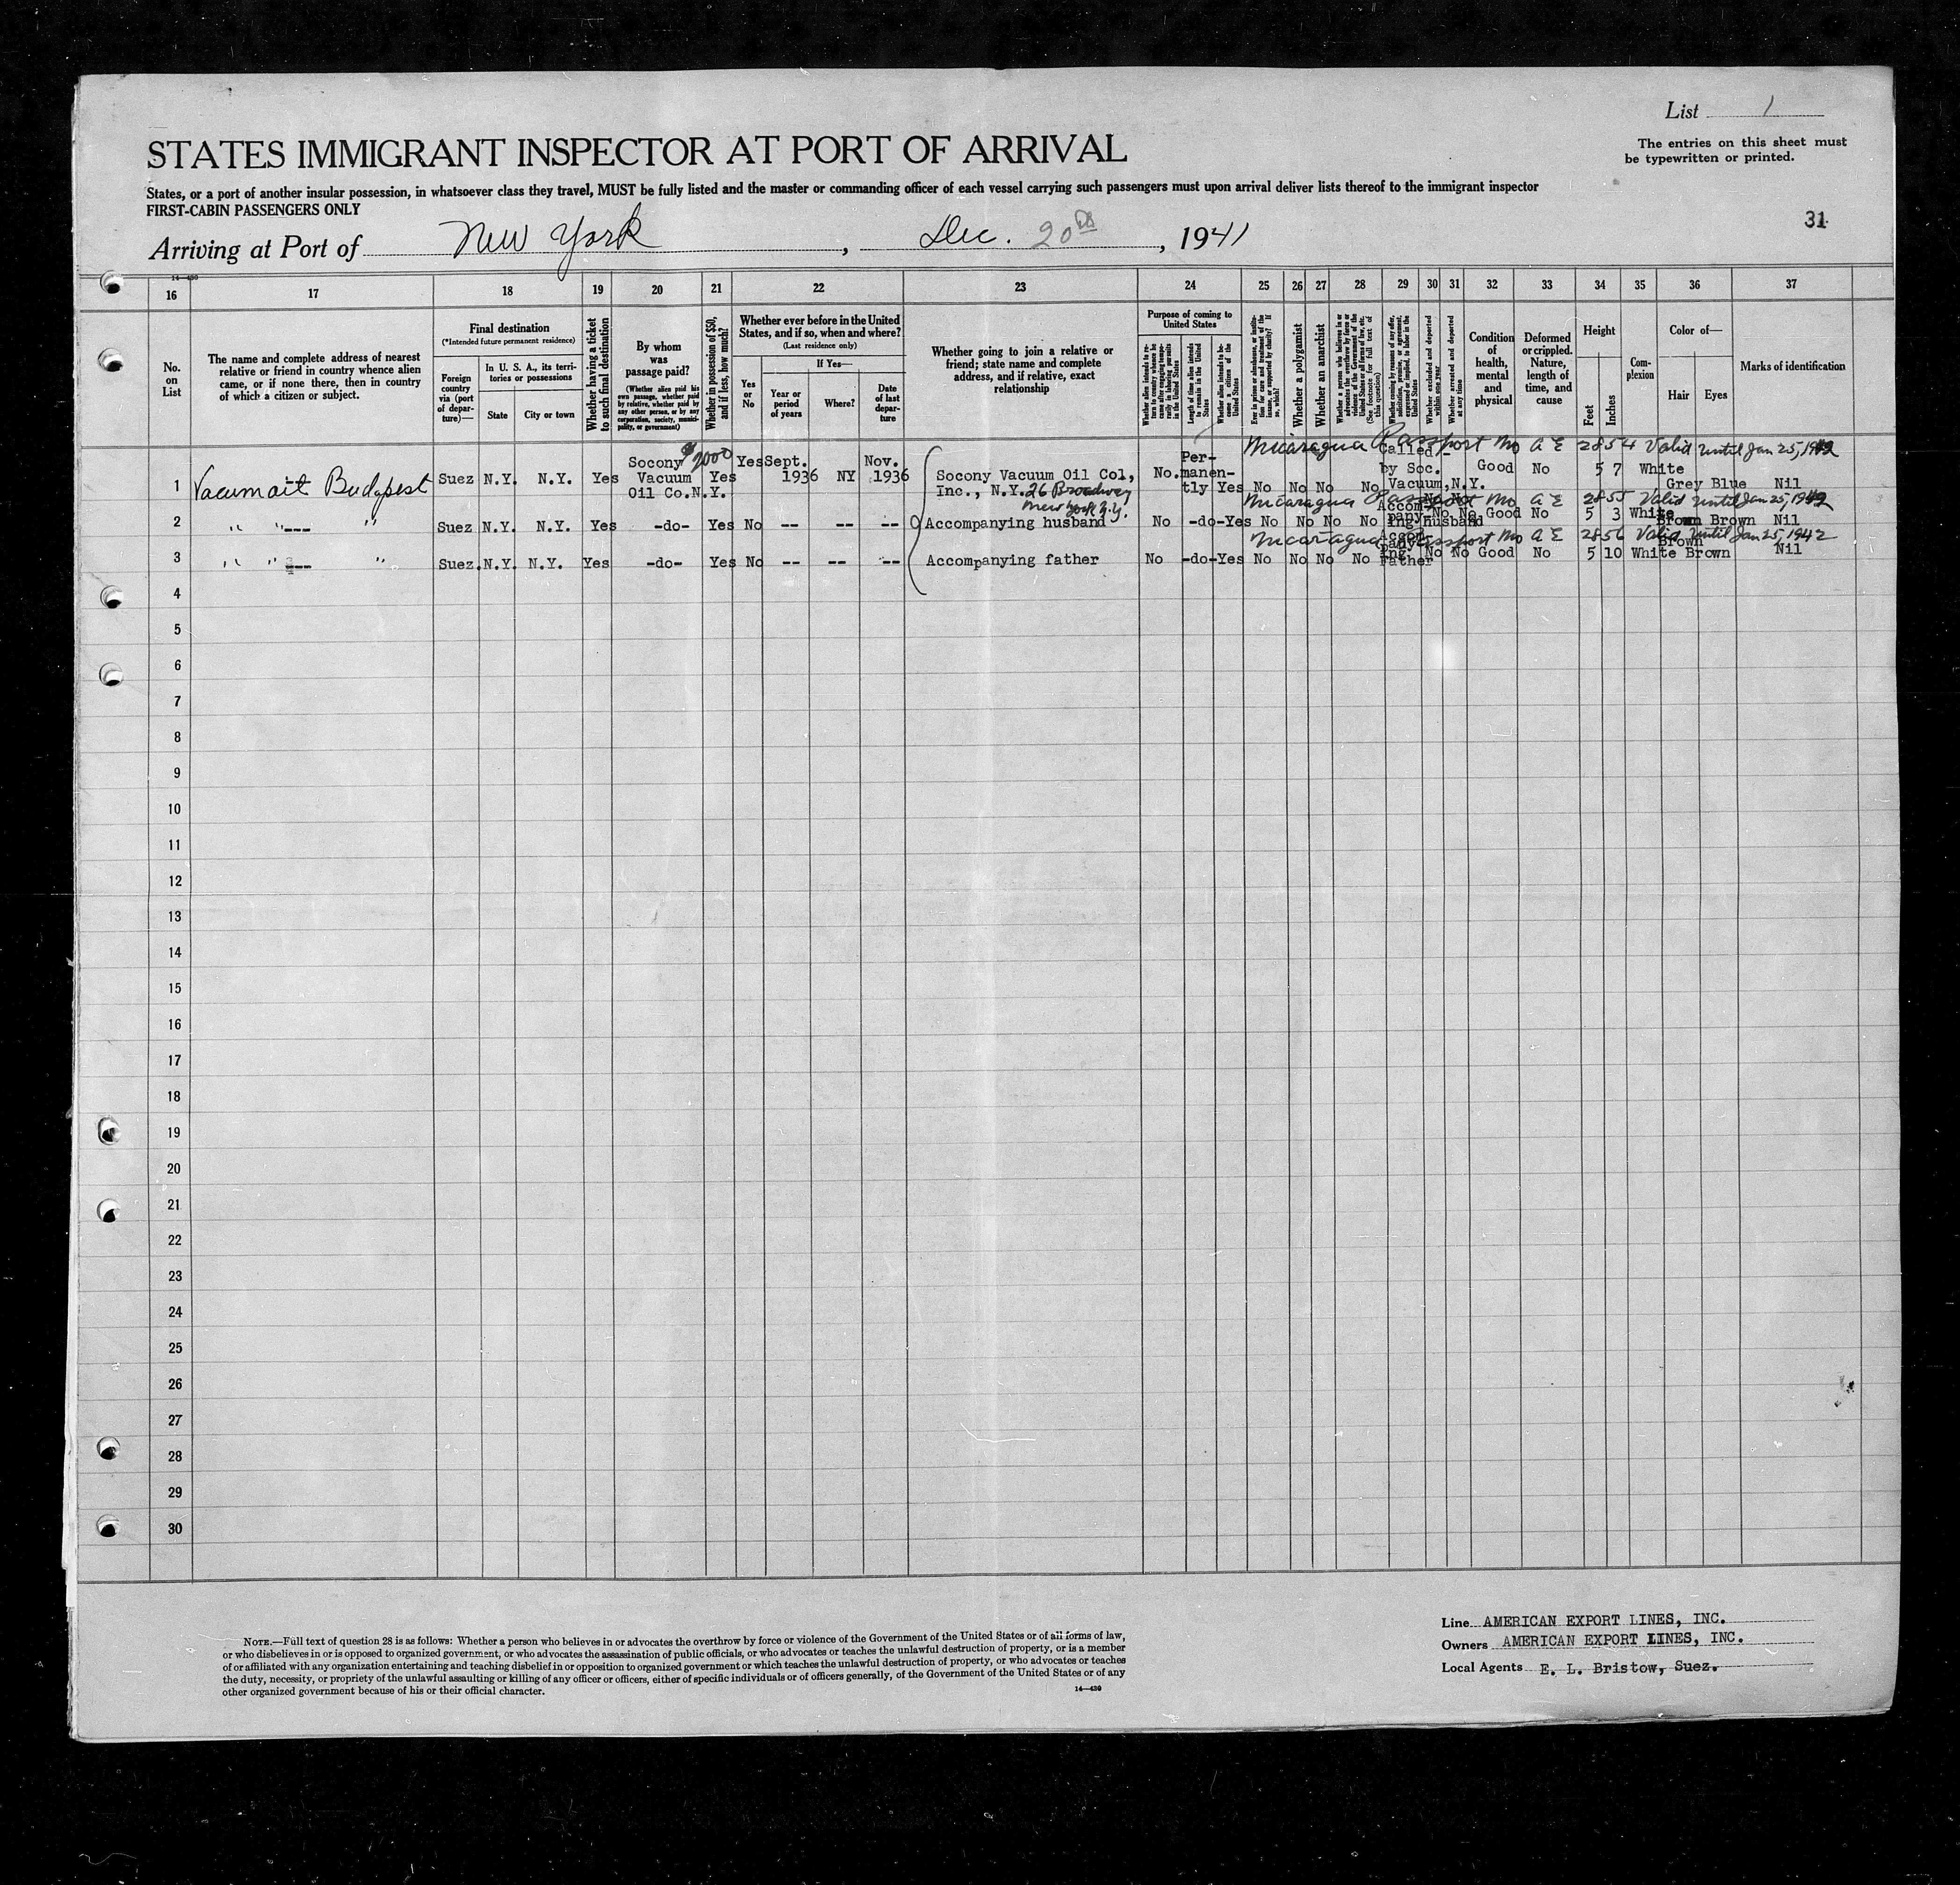 List 1
The entries on this sheet must
be typewritten or printed.
STATES IMMIGRANT INSPECTOR AT PORT OF ARRIVAL
States, or a port of another insular possession, in whatsoever class they travel, MUST be fully listed and the master or commanding officer of each vessel carrying such passengers must upon arrival deliver lists thereof to the immigrant inspector
FIRST-CABIN PASSENGERS ONLY
31
Arriving at Port of New York, Dec. 20th, 1941
14—430
16 17 18 19 20 21 22 23 24 25 26 27 28 29 30 31 32 33 34 35 36 37
No. on List
The name and complete address of nearest
relative or friend in country whence alien
came, or if none there, then in country
of which a citizen or subject.
Final destination
(*Intended future permanent residence)
Foreign country via (port of departure)—
In U. S. A., its territories or possessions
State
City or town
Whether having a ticket to such final destination
By whom was passage paid?
(Whether alien paid his own passage, whether paid by relative, whether paid by any other person, or by any corporation, society, municipality, or government)
Whether in possession of $50, and if less, how much?
Whether ever before in the United States, and if so, when and where?
(Last residence only)
Yes or No
If Yes—
Year or period of years
Where?
Date of last departure
Whether going to join a relative or
friend; state name and complete
address, and if relative, exact
relationship
Purpose of coming to United States
Whether alien intends to return to country whence he came after engaging temporarily in laboring pursuits in the United States
Length of time alien intends to remain in the United States
Whether alien intends to become a citizen of the United States
Ever in prison or almshouse, or institution for care and treatment of the insane, or supported by charity? If so, which?
Whether a polygamist
Whether an anarchist
Whether a person who believes in or advocates the overthrow by force or violence of the Government of the United States or all forms of law, etc. (See footnote for full text of this question)
Whether coming by reasons of any offer, solicitation, promise, or agreement, expressed or implied, to labor in the United States
Whether excluded and deported within one year
Whether arrested and deported at any time
Condition of health, mental and physical
Deformed or crippled. Nature, length of time, and cause
Height
Feet
Inches
Complexion
Color of—
Hair
Eyes
Marks of identification
Nicaragua Passport No A E 2854 Valid until Jan 25, 1942
1 Vacumoit Budapest Suez N.Y. N.Y. Yes Socony Vacuum Oil Co. N.Y. $2000 Yes Yes Sept. 1936 NY Nov. 1936 Socony Vacuum Oil Col, Inc., N.Y. 26 Broadway New York N.Y. No. Permanently Yes No No No No Called by Soc. Vacuum, N.Y. No No Good No 5 7 White Grey Blue Nil
Nicaragua Passport No A E 2855 Valid until Jan 25, 1942
2 " "--- " Suez N.Y. N.Y. Yes -do- Yes No -- -- -- Accompanying husband No -do- Yes No No No No Accompanying Husband No No Good No 5 3 White Brown Brown Nil
Nicaragua Passport No A E 2856 Valid until Jan 25, 1942
3 " "--- " Suez. N.Y. N.Y. Yes -do- Yes No -- -- -- Accompanying father No -do- Yes No No No No Accompanying Father No No Good No 5 10 White Brown Brown Nil
4
5
6
7
8
9
10
11
12
13
14
15
16
17
18
19
20
21
22
23
24
25
26
27
28
29
30
NOTE.—Full text of question 28 is as follows: Whether a person who believes in or advocates the overthrow by force or violence of the Government of the United States or of all forms of law,
or who disbelieves in or is opposed to organized government, or who advocates the assassination of public officials, or who advocates or teaches the unlawful destruction of property, or is a member
of or affiliated with any organization entertaining and teaching disbelief in or opposition to organized government or which teaches the unlawful destruction of property, or who advocates or teaches
the duty, necessity, or propriety of the unlawful assaulting or killing of any officer or officers, either of specific individuals or of officers generally, of the Government of the United States or of any
other organized government because of his or their official character.
14—430
Line AMERICAN EXPORT LINES, INC.
Owners AMERICAN EXPORT LINES, INC.
Local Agents E. L. Bristow, Suez.